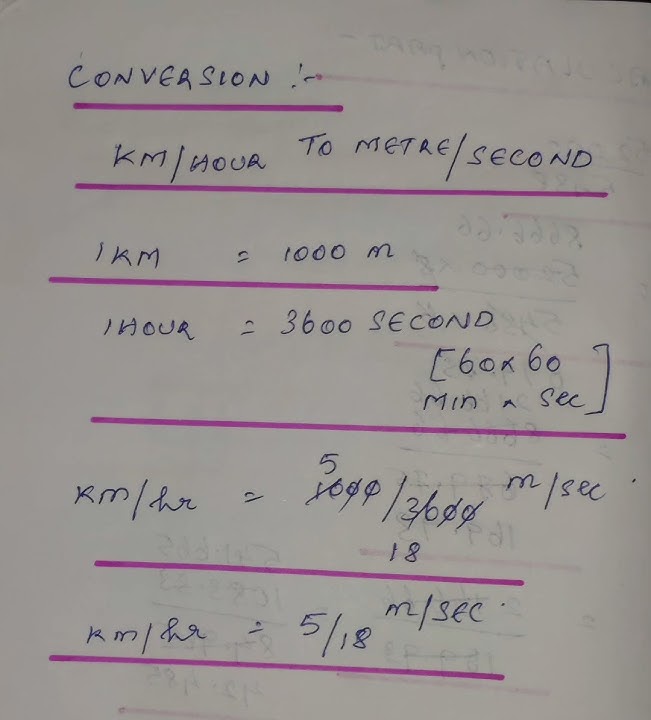 CONVERSION :-
KM/HOUR TO METRE/SECOND
1 KM = 1000 m
1 HOUR = 3600 SECOND
[60 x 60
MIN x Sec]
5
km/hr = 1000/3600 m/sec.
18
km/hr = 5/18 m/SEC.